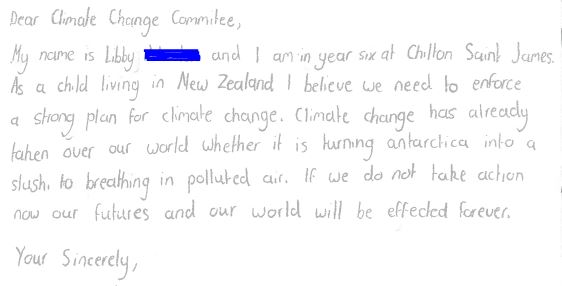 Dear Climate Change Commitee,
My name is Libby and I am in year six at Chilton Saint James.
As a child living in New Zealand I believe we need to enforce
a strong plan for climate change. Climate change has already
taken over our world whether it is turning antarctica into a
slush, to breathing in polluted air. If we do not take action
now our futures and our world will be effected forever.
Your Sincerely,